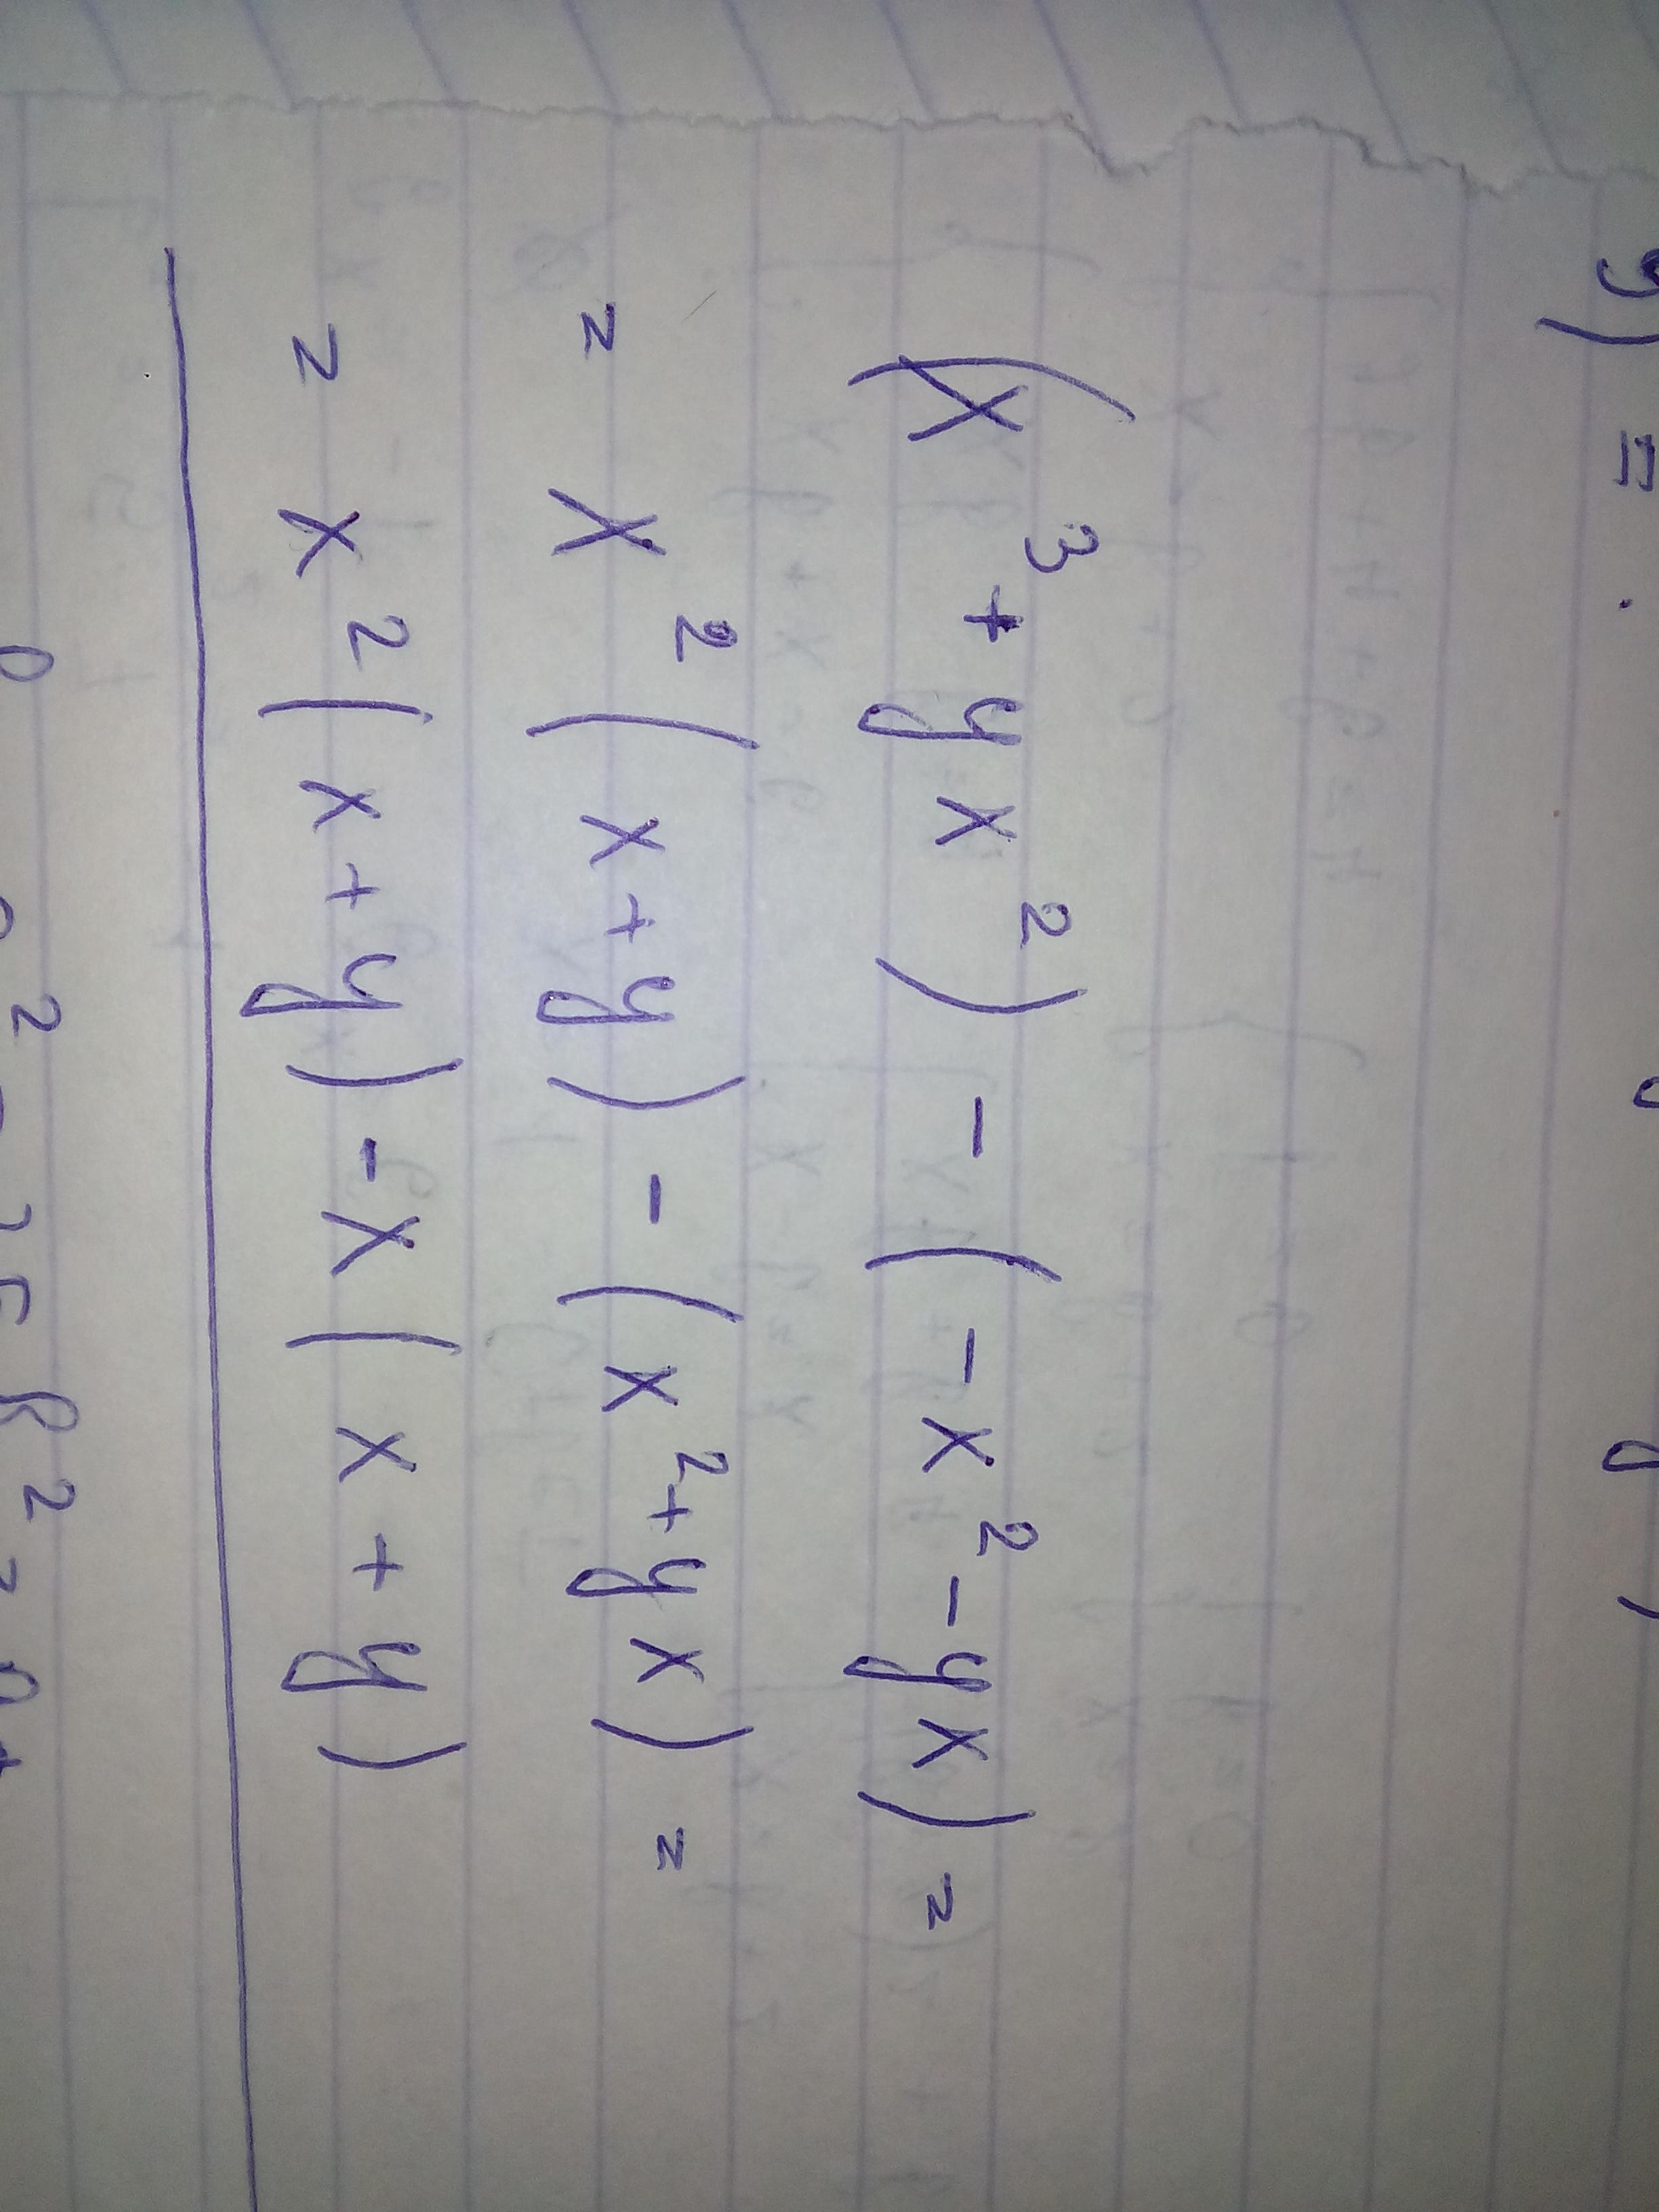 (x³ + yx²) - (-x² - yx) =
= x²(x+y) - (x²+yx) =
= x²(x+y) - x(x+y)